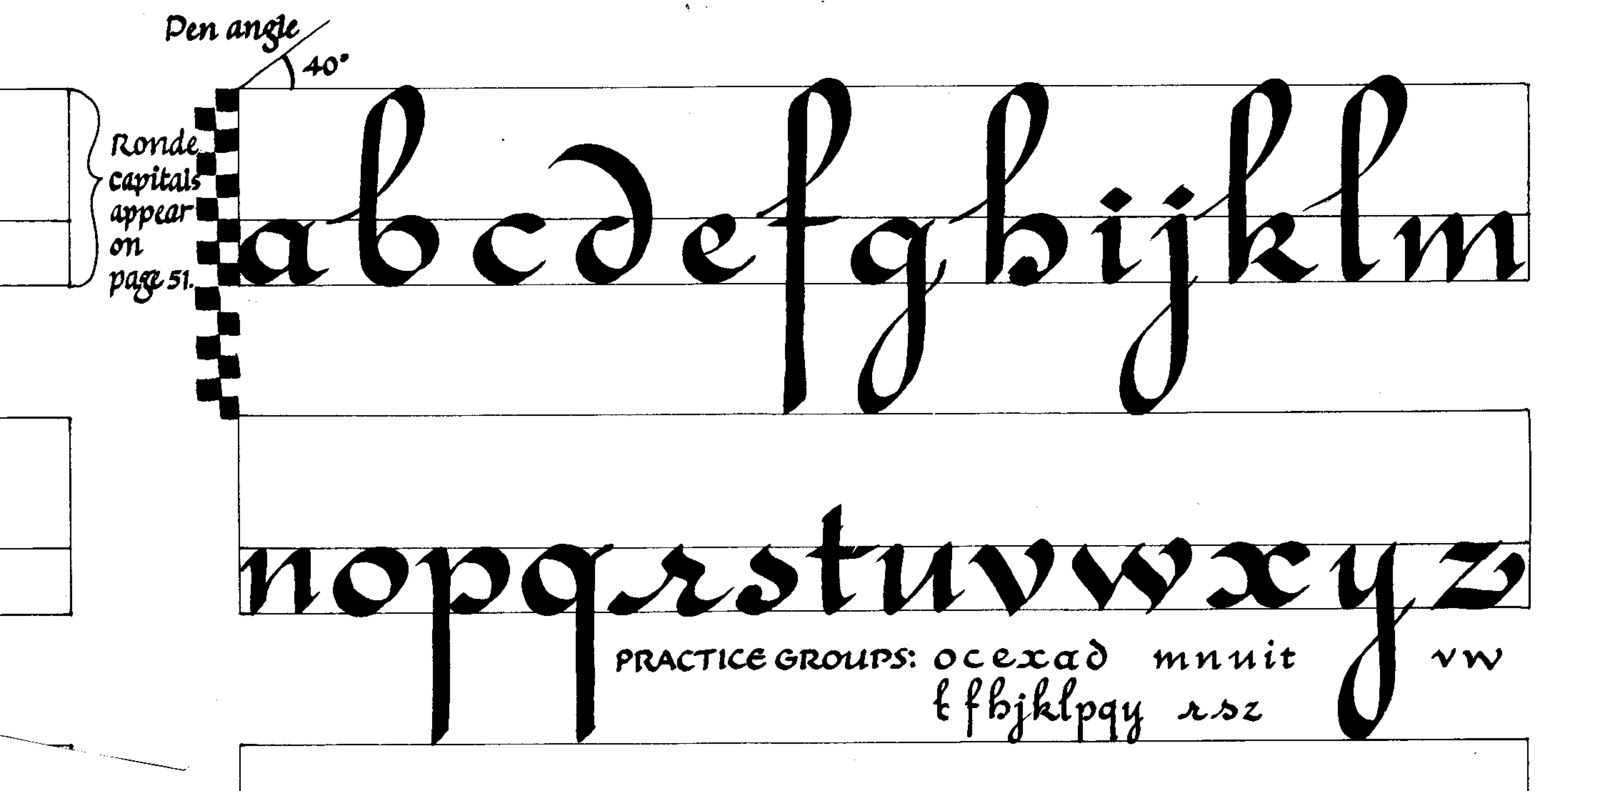 Pen angle
40°
Ronde
capitals
appear
on
page 51.
a b c d e f g h i j k l m
n o p q r s t u v w x y z
PRACTICE GROUPS: o c e x a d m n u i t v w
t f h j k l p q y r s z